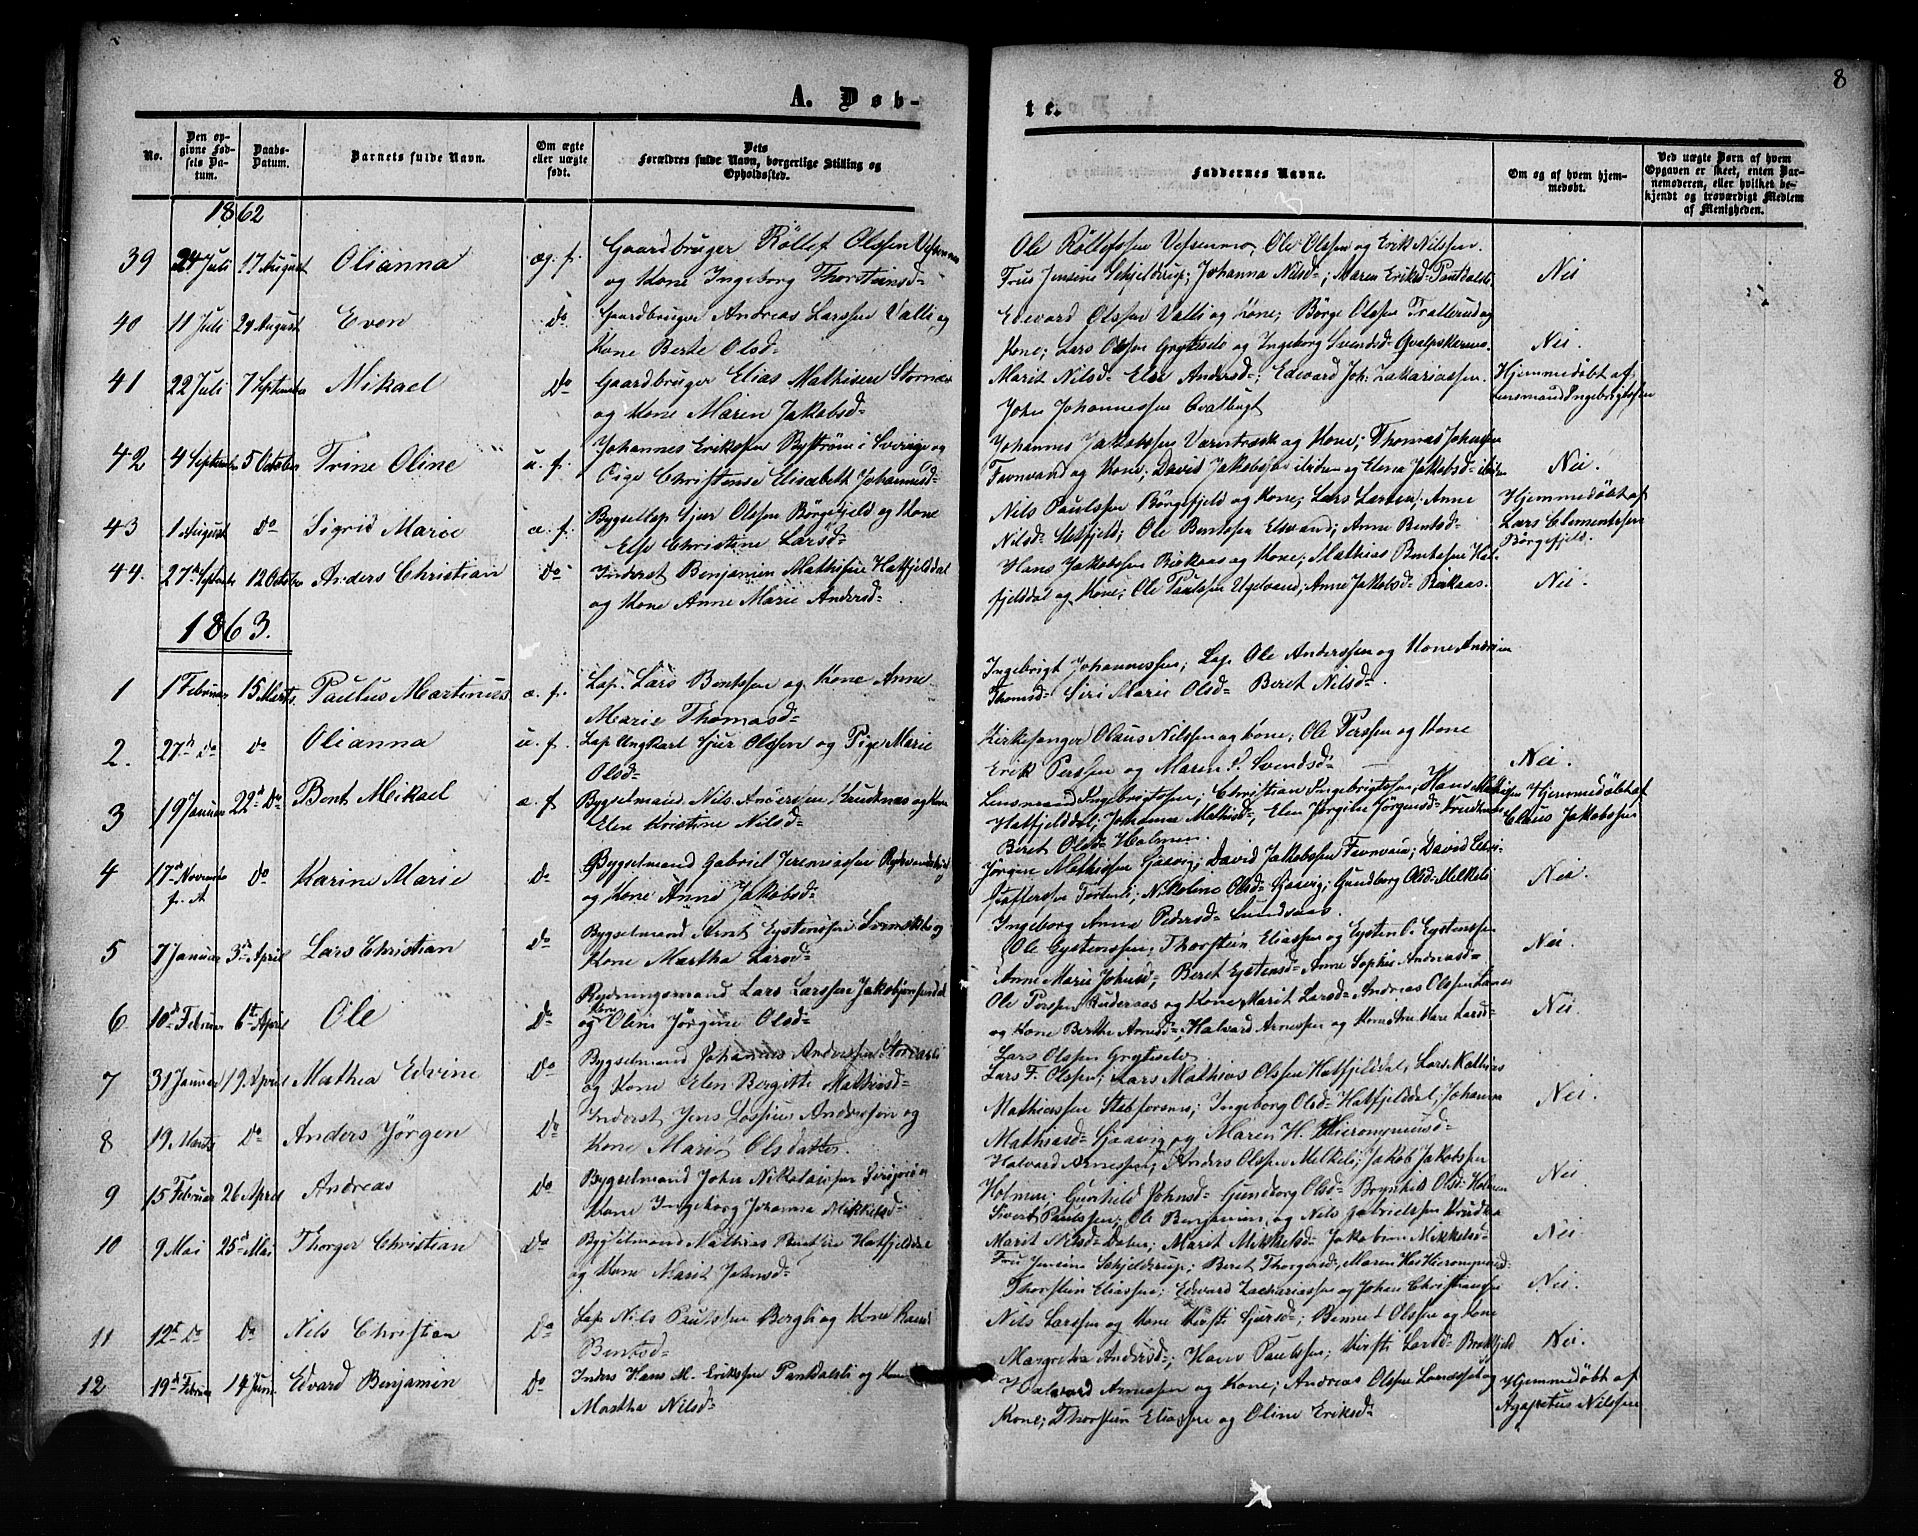 8
A. Døb-
te.
No.
Den opgivne Fødsels Datum.
Daabs-Datum.
Barnets fulde Navn.
Om ægte eller uægte født.
Dets Forældres fulde Navn, borgerlige Stilling og Opholdssted.
Faddernes Navne.
Om og af hvem hjemmedøbt.
Ved uægte Børn af hvem Opgaven er skeet, enten Barnemoderen, eller hvilket bekjendt og troværdigt Medlem af Menigheden.
1862
39 24 Juli 17 August Olianna æg. f. Gaardbruger Røllef Olssen
og Kone Ingeborg Thorsteinsd=
Ole Røllefssen Vefsenmo, Ole Olssen og Erik Nilssen
Frue Jensine Schjeldrup; Johanna Nilsd=; Maren Eriksd= Pantdalsli
Nei
40 11 Juli 24 August Even Do Gaardbruger Andreas Larssen Valli og
Kone Berte Olsd=
Edevard Olssen Valli og Kone; Börge Olssen Trallerud og
Kone; Lars Olssen Grytsels og Ingeborg Svendsd=
Nei.
41 22 Juli 7 September Mikael Do Gaardbruger Elias Mathisen Stornæs
og Kone Maren Jakobsd=
Marit Nilsd= Else Andersd=; Edevard Joh. Zakariassen
John Johannessen
Hjemmedøbt af
Lensmand Ingebrigtssen
42 4 September 5 October Trine Oline u. f. Johannes Erikssen Byström i Sverige og
Pige Christense Elisabeth Johannesd=
Johannes Jakobssen Varntræsk og Kone; Thomas Johnssen
Favnvand og Kone; David Jakobssen ibiden og Elena Jakobsd= ibiden
Nei.
43 1 August Do Sigrid Marie æ. f. Bygsellap Sjur Olssen Börgefjeld og Kone
Else Christine Larsd=
Nils Paulssen Börgefjeld og Kone; Lars Larssen; Anne
Nilsd= ; Ole Bentssen Elvand; Anne Bentsd=
Hjemmedøbt af
Lars Clementssen
Børgefjeld.
44. 27d September 12 October Anders Christian Do Inderst Benjamin Mathisen Hatfjelddal
og Kone Anne Marie Andersd=
Hans Jakobssen Biskaas og Kone; Mathias Bentssen Hat-
fjelddal og Kone; Ole Paulssen Ugelvand; Anne Jakobsd=
Nei.
1863.
1 1 Februar 15 Marts. Paulus Martinus æ. f. Lap. Lars Bentssen og Kone Anne
Marie Thomasd=
Ingebrigt Johannessen; Lap Ole Anderssen og Kone
Thomsd= Siri Marie Olsd= Beret Nilsd=
2. 27d Do Do Olianna u. f. Lap Ungkarl Sjur Olssen og Pige Marie
Olsd=
Kirkesanger Olaus Nilssen og Kone; Ole Perssen og Kone
Erik Perssen og Maren S. Svendsd=
Nei.
3 19 Januar 22d Do Bent Mikael æ. f. Bygselmand Nils Anderssen og Kone
Elen Kristine Nilsd=
Lensmand Ingebrigtssen; Christian Ingebrigtssen; Hans
Hatfjelddal; Johanna Mathisd=; Elen Jörgine Jörgensd=
Beret Olsd= Holmen.
Hjemmedøbt af
Claus Jakobssen
4 17d November f. A Do Karine Marie Do Bygselmand Gabriel Jeremiassen
og Kone Anne Jakobsd=
Jörgen Mathissen Sjaavig; David Jakobssen Favnvand; David
Nikolina Olsd= Sjaavig; Gundborg Olsd=
Ingeborg Anna Pedersd=
Nei.
5 7 Januar 3d April Lars Christian Do Bygselmand Arnt Eystenssen og
Kone Martha Larsd=
Ole Eystenssen; Thorstein Eliassen og Eysten O. Eystenssen
Anne Marie Johnsd=; Beret Eystensd= Anne Sophie Andreasd=
Nei.
6. 10d Februar 6t April Ole Do Rydningsmand Lars Larssen
og Kone Oline Jörgine Olsd=
Ole Perssen og Kone Marit Larsd= Andreas Olssen
og Kone Berthe Arnesd=; Halvard Arnessen og Kone
Lars Olssen
Nei.
7 31 Januar 19 April Mathea Edvine Do Bygselmand Johannes Anderssen
og Kone Elen Bergitte Mathisd=
Lars F. Olssen; Lars Mathias Olssen Hatfjelddal, Lars Mathias
Nei.
8 19 Marts Do Anders Jörgen Do Inderst Jens Anderssen og
Kone Marie Olsdatter.
Mathiassen; Ingeborg Olsd= Hatfjelddal; Johanna
Mathiasd= Sjaavig og Maren H. Hieronymusd=
9 15 Februar 26 April Andreas Do Bygselmand John Nikolaissen og
Kone Ingeborg Johanna Mikkelsd=
Halvard Arnessen; Anders Olssen; Jakob Jakobssen
Holmen; Gunhild Johnsd= Gundborg Olsd= Olsd= Holmen
Nei.
10 9 Mai 25d Mai Thorger Christian Do Bygselmand Mathias Hatfjelddal
og Kone Marit Johnsd=
Sivert Paulssen; Ole Benjaminss. og Nils Gabrielssen
Marit Nilsd=; Marit Mikkelsd= Mikkelsd=
Fru Jensine Schjeldrup; Beret Thorgersd=
Thorstein Eliassen; Edvard Zachariassen og Johan Christiansen
Nei.
Nei.
11 12t Do Do Nils Christian Do Lap Nils Paulssen og Kone
Bentsd=
Nils Larssen og Kone Kirsti Sjursd=; Bennet Olssen og Kone
Margretha Andersd=; Hans Paulssen; Kirsti Larsd=
Nei.
12 19d Februar 14 Juni Edvard Benjamin Do Inders Hans M. Erikssen Pantdalsli og Kone
Martha Nilsd=
Halvard Arnessen og Kone; Andreas Olssen og
Kone; Thorstein Eliassen og Oline Eriksd=
Hjemmedøbt af
Agapetus Nilssen